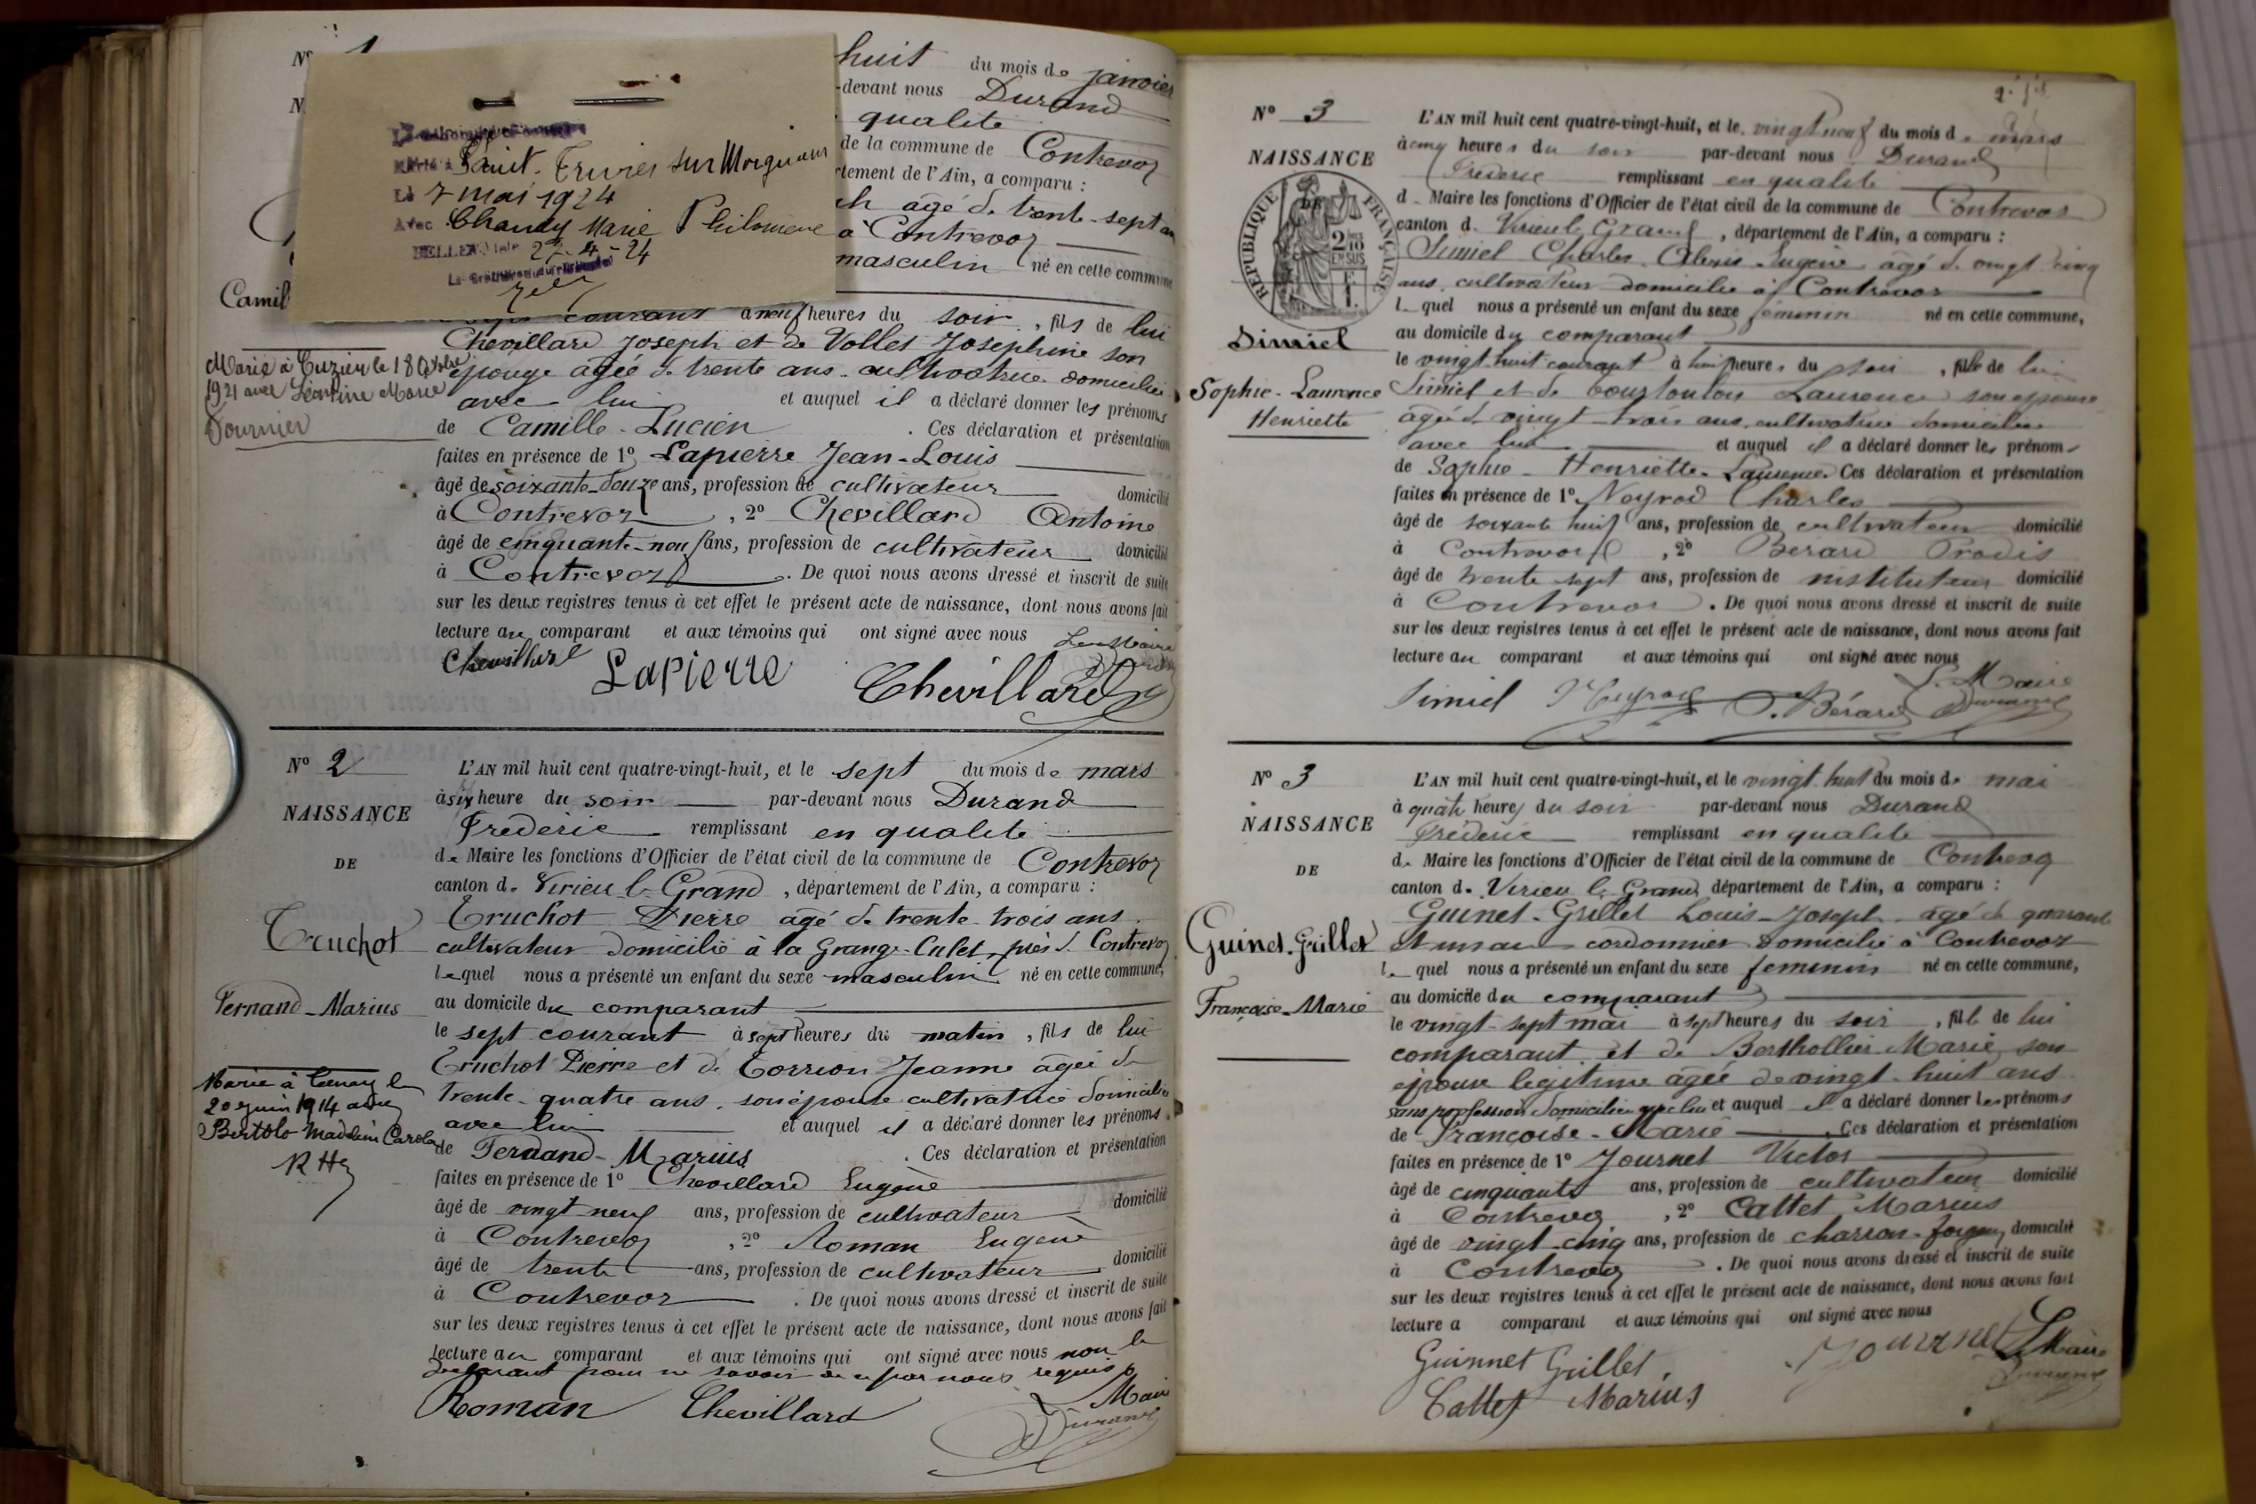 Nº 1
huit du mois de janvier
-devant nous Durand
qualité
de la commune de Contrevoz
rtement de l'Ain, a comparu :
ph âgé de trente-sept ans
à Contrevoz
masculin né en cette commune
Marié à Saint-Trivier sur Moignans
Le 7 mai 1924
Avec Chanay Marie Philomène
BELLEY, le 22-4-24
Camil
courant à neuf heures du soir, fils de lui
Chevillard Joseph et de Vollet Joséphine son
épouse âgée de trente ans, cultivatrice domiciliée
avec lui et auquel il a déclaré donner les prénoms
de Camille-Lucien. Ces déclaration et présentation
faites en présence de 1º Lapierre Jean-Louis
âgé de soixante-douze ans, profession de cultivateur domicilié
à Contrevoz, 2º Chevillard Antoine
âgé de cinquante-neuf ans, profession de cultivateur domicilié
à Contrevoz. De quoi nous avons dressé et inscrit de suite
sur les deux registres tenus à cet effet le présent acte de naissance, dont nous avons fait
lecture au comparant et aux témoins qui ont signé avec nous Le Maire
Chevillard Lapierre Chevillard
Marié à Cuzieu le 18 Octobre
1921 avec Léontine Marie
Fournier
Nº 2
NAISSANCE
DE
Truchot
Fernand-Marius
L'AN mil huit cent quatre-vingt-huit, et le sept du mois de mars
à six heure du soir par-devant nous Durand
Frédéric remplissant en qualité
de Maire les fonctions d'Officier de l'état civil de la commune de Contrevoz
canton de Virieu le Grand, département de l'Ain, a comparu :
Truchot Pierre âgé de trente-trois ans
cultivateur domicilié à la Grange-Culet, près de Contrevoz
lequel nous a présenté un enfant du sexe masculin né en cette commune,
au domicile du comparant
le sept courant à sept heures du matin, fils de lui
Truchot Pierre et de Corrion Jeanne âgée de
trente-quatre ans, son épouse cultivatrice domiciliée
avec lui et auquel il a déclaré donner les prénoms
de Fernand-Marius. Ces déclaration et présentation
faites en présence de 1º Chevillard Eugène
âgé de vingt neuf ans, profession de cultivateur domicilié
à Contrevoz, 2º Roman Eugène
âgé de trente ans, profession de cultivateur domicilié
à Contrevoz. De quoi nous avons dressé et inscrit de suite
sur les deux registres tenus à cet effet le présent acte de naissance, dont nous avons fait
lecture au comparant et aux témoins qui ont signé avec nous non le
déclarant pour ne savoir de ce par nous requis
Roman Chevillard Le Maire
Durand
Marié à Cenay le
20 juin 1914 avec
Bertolo Madelein Carola
Nº 3
NAISSANCE
RÉPUBLIQUE FRANÇAISE
Simiel
Sophie-Laurence
Henriette
L'AN mil huit cent quatre-vingt-huit, et le vingt neuf du mois de mars
à cinq heures du soir par-devant nous Durand
Frédéric remplissant en qualité
de Maire les fonctions d'Officier de l'état civil de la commune de Contrevoz
canton de Virieu le Grand, département de l'Ain, a comparu :
Simiel Charles Alexis Eugène âgé de vingt cinq
ans, cultivateur domicilié à Contrevoz
lequel nous a présenté un enfant du sexe féminin né en cette commune,
au domicile du comparant
le vingt-huit courant à huit heures du soir, fille de lui
Simiel et de Courtoulou Laurence son épouse
âgée de vingt-trois ans, cultivatrice domiciliée
avec lui et auquel il a déclaré donner les prénoms
de Sophie-Henriette-Laurence. Ces déclaration et présentation
faites en présence de 1º Neyrod Charles
âgé de soixante huit ans, profession de cultivateur domicilié
à Contrevoz, 2º Bérard Prodis
âgé de trente sept ans, profession de instituteur domicilié
à Contrevoz. De quoi nous avons dressé et inscrit de suite
sur les deux registres tenus à cet effet le présent acte de naissance, dont nous avons fait
lecture au comparant et aux témoins qui ont signé avec nous
Simiel Neyrod P. Bérard Le Maire
Durand
Nº 3
NAISSANCE
DE
Guinet-Grillet
Françoise-Marie
L'AN mil huit cent quatre-vingt-huit, et le vingt huit du mois de mai
à quatre heures du soir par-devant nous Durand
Frédéric remplissant en qualité
de Maire les fonctions d'Officier de l'état civil de la commune de Contrevoz
canton de Virieu le Grand, département de l'Ain, a comparu :
Guinet-Grillet Louis-Joseph âgé de quarante
et un ans cordonnier domicilié à Contrevoz
lequel nous a présenté un enfant du sexe féminin né en cette commune,
au domicile du comparant
le vingt-sept mai à sept heures du soir, fille de lui
comparant et de Berthollier Marie son
épouse légitime âgée de vingt-huit ans
sans profession domiciliée avec lui et auquel il a déclaré donner les prénoms
de Françoise-Marie. Ces déclaration et présentation
faites en présence de 1º Journet Victor
âgé de cinquante ans, profession de cultivateur domicilié
à Contrevoz, 2º Cattet Marius
âgé de vingt-cinq ans, profession de charron-forgeron domicilié
à Contrevoz. De quoi nous avons dressé et inscrit de suite
sur les deux registres tenus à cet effet le présent acte de naissance, dont nous avons fait
lecture a comparant et aux témoins qui ont signé avec nous
Guinnet Grillet Journet Le Maire
Cattet Marius Durand